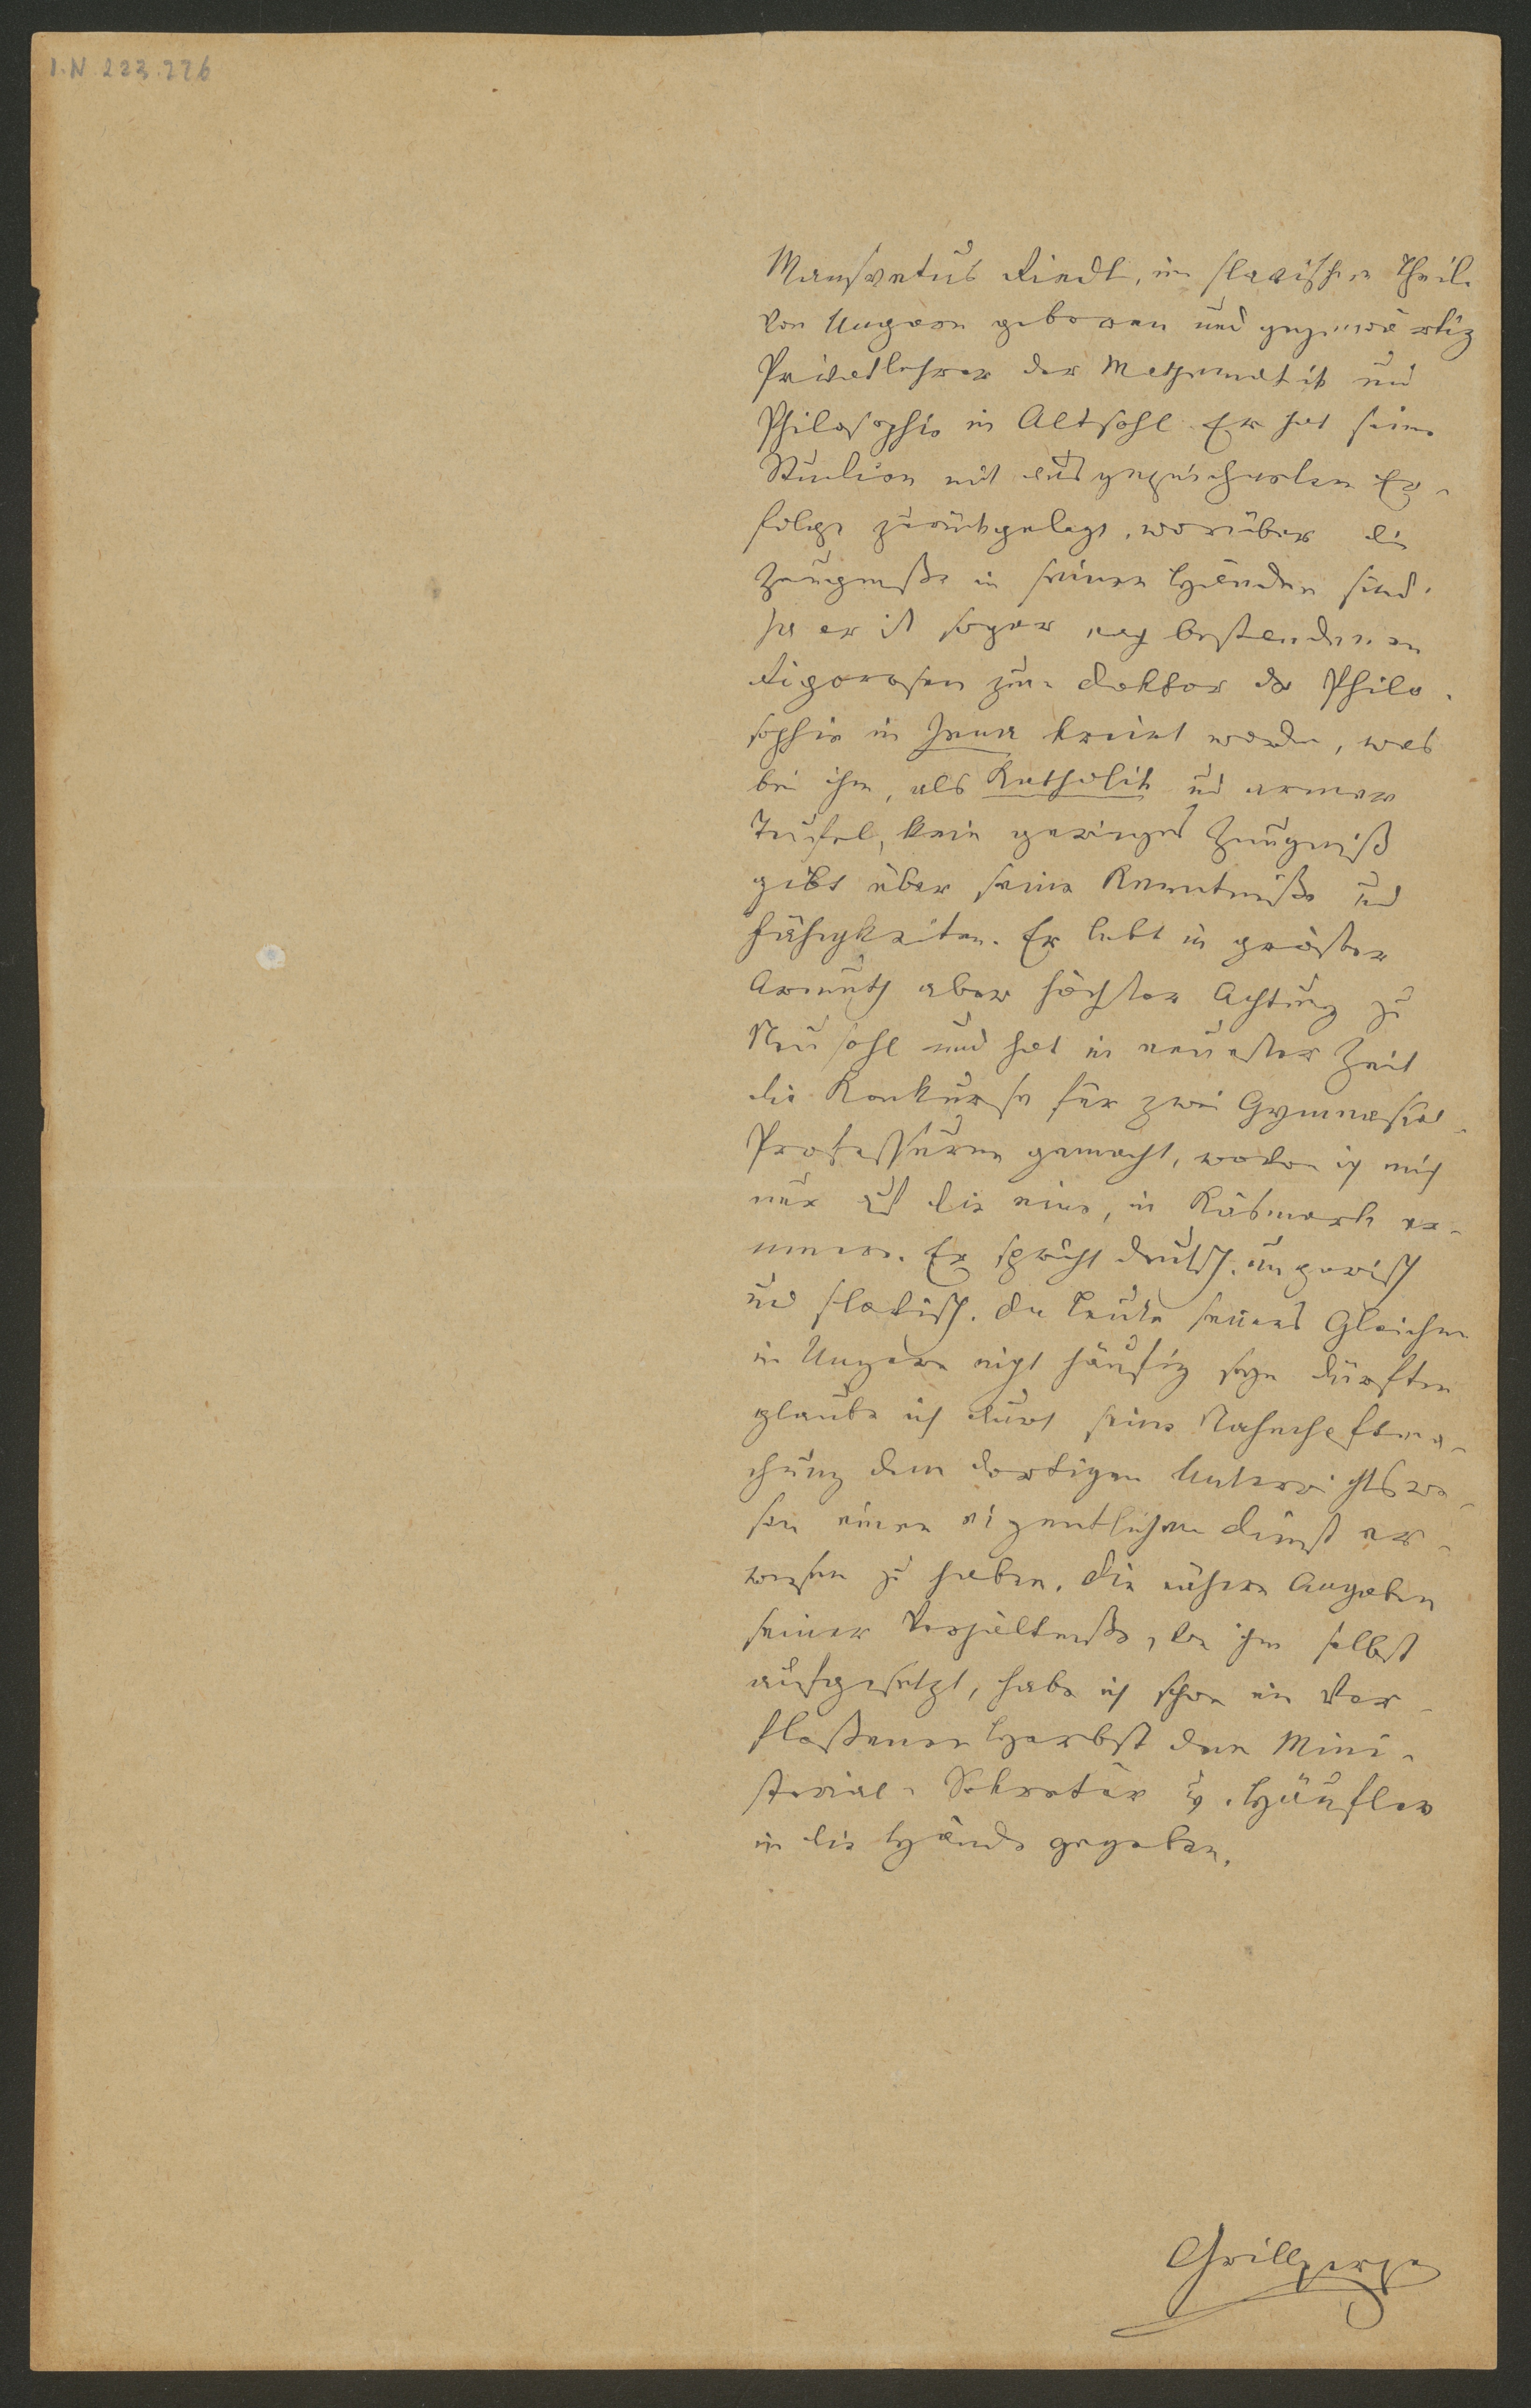 I.N. 223.226
Mansvetus Riedl, im slavischen Theile
von Ungarn geboren und gegenwärtig
Privatlehrer der Mathematik und
Philosophie in Altsohl. Er hat seine
Studien mit ausgezeichneten Er-
folge zurückgelegt, worüber die
Zeugniße in seinen Händen sind.
Ja er ist sogar nach bestandenen
Rigorosen zum Doktor der Philo-
sophie in Jena kreirt worden, was
bei ihm, als Katholik und armer
Teufel, kein geringes Zeugniß
gibt über seine Kenntniße und
Fähigkeiten. Er lebt in größter
Armuth aber höchster Achtung zu
Neusohl und hat in neuester Zeit
die Konkurse für zwei Gymnasial-
Professuren gemacht, wovon ich mich
nur auf die eine, in Käsmark er-
innere. Er spricht deutsch, ungarisch
und slavisch. Da Leute seines Gleichen
in Ungarn nicht häufig seyn dürften
glaube ich durch seine Nahmhaftma-
chung dem dortigen Unterrichtswe-
sen einen eigentlichen Dienst er-
wiesen zu haben. Die nähern Angaben
seiner Verhältniße, von ihm selbst
aufgesetzt, habe ich schon im ver-
floßenen Herbst dem Mini-
sterial-Sekretär v. Häufler
in die Hände gegeben.
Grillparzer